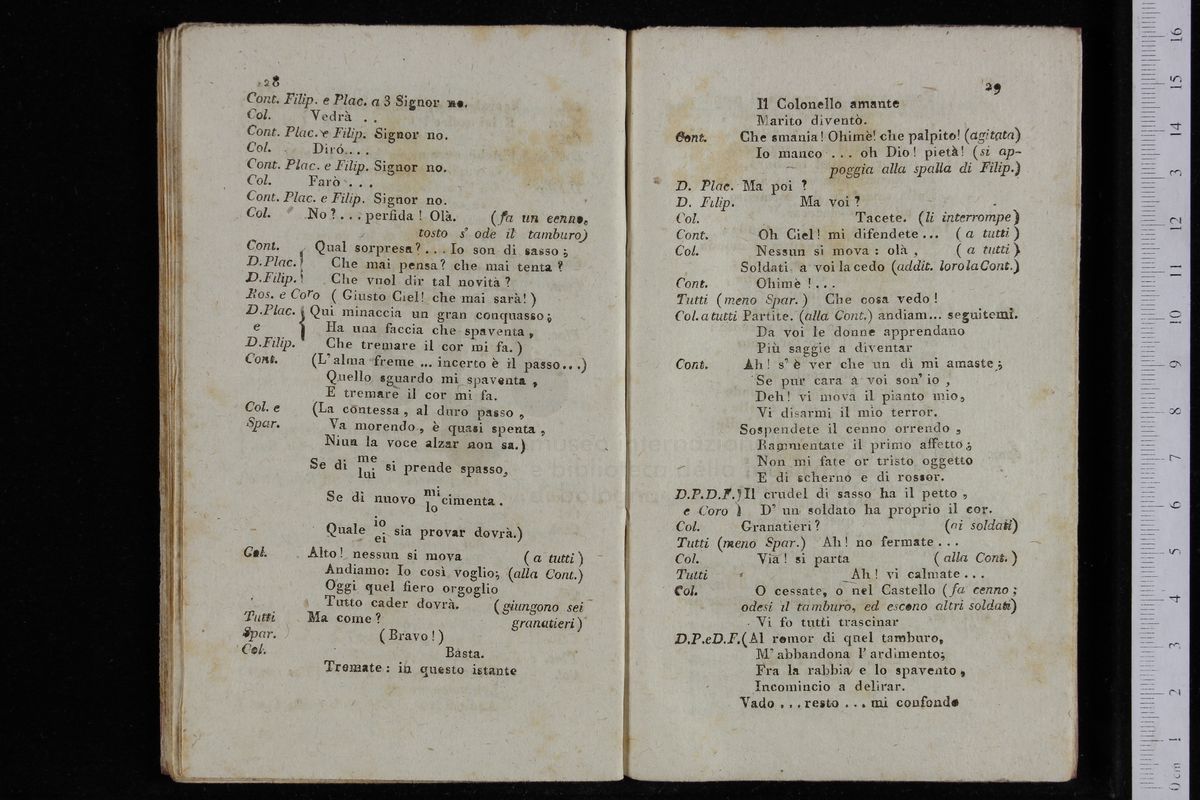 28
Cont. Filip. e Plac. a 3 Signor no.
Col. Vedrà . .
Cont. Plac. e Filip. Signor no.
Col. Diró....
Cont. Plac. e Filip. Signor no.
Col. Farò . . .
Cont. Plac. e Filip. Signor no.
Col. No?... perfida! Olà. (fa un cenno,
tosto s' ode il tamburo)
Cont. Qual sorpresa?... Io son di sasso;
D.Plac. Che mai pensa? che mai tenta?
D.Filip. Che vuol dir tal novità?
Ros. e Coro ( Giusto Ciel! che mai sarà! )
D.Plac. Qui minaccia un gran conquasso;
e Ha una faccia che spaventa,
D.Filip. Che tremare il cor mi fa.)
Cont. (L'alma freme ... incerto è il passo...)
Quello sguardo mi spaventa,
E tremare il cor mi fa.
Col. e (La contessa, al duro passo,
Spar. Va morendo, è quasi spenta,
Niun la voce alzar non sa.)
Se di me si prende spasso,
lui
Se di nuovo mi cimenta.
lo
Quale io sia provar dovrà.)
ei
Col. Alto! nessun si mova (a tutti)
Andiamo: Io così voglio; (alla Cont.)
Oggi quel fiero orgoglio
Tutto cader dovrà. (giungono sei
Tutti Ma come? granatieri)
Spar. (Bravo!)
Col. Basta.
Tremate: in questo istante
29
Il Colonello amante
Marito diventò.
Cont. Che smania! Ohimè! che palpito! (agitata)
Io manco ... oh Dio! pietà! (si ap-
poggia alla spalla di Filip.)
D. Plac. Ma poi ?
D. Filip. Ma voi ?
Col. Tacete. (li interrompe)
Cont. Oh Ciel! mi difendete... (a tutti)
Col. Nessun si mova: olà, (a tutti)
Soldati a voi la cedo (addit. loro la Cont.)
Cont. Ohimè!...
Tutti (meno Spar.) Che cosa vedo!
Col. a tutti Partite. (alla Cont.) andiam... seguitemi.
Da voi le donne apprendano
Più saggie a diventar
Cont. Ah! s' è ver che un dì mi amaste;
Se pur cara a voi son' io,
Deh! vi mova il pianto mio,
Vi disarmi il mio terror.
Sospendete il cenno orrendo,
Rammentate il primo affetto;
Non mi fate or tristo oggetto
E di scherno e di rossor.
D.P.D.F. Il crudel di sasso ha il petto,
e Coro D' un soldato ha proprio il cor.
Col. Granatieri? (ai soldati)
Tutti (meno Spar.) Ah! no fermate...
Col. Via! si parta (alla Cont.)
Tutti Ah! vi calmate...
Col. O cessate, o nel Castello (fa cenno;
odesi il tamburo, ed escono altri soldati)
Vi fo tutti trascinar
D.P.eD.F.(Al romor di quel tamburo,
M'abbandona l'ardimento;
Fra la rabbia e lo spavento,
Incomincio a delirar.
Vado ... resto ... mi confondo
0 cm 1 2 3 4 5 6 7 8 9 10 11 12 13 14 15 16